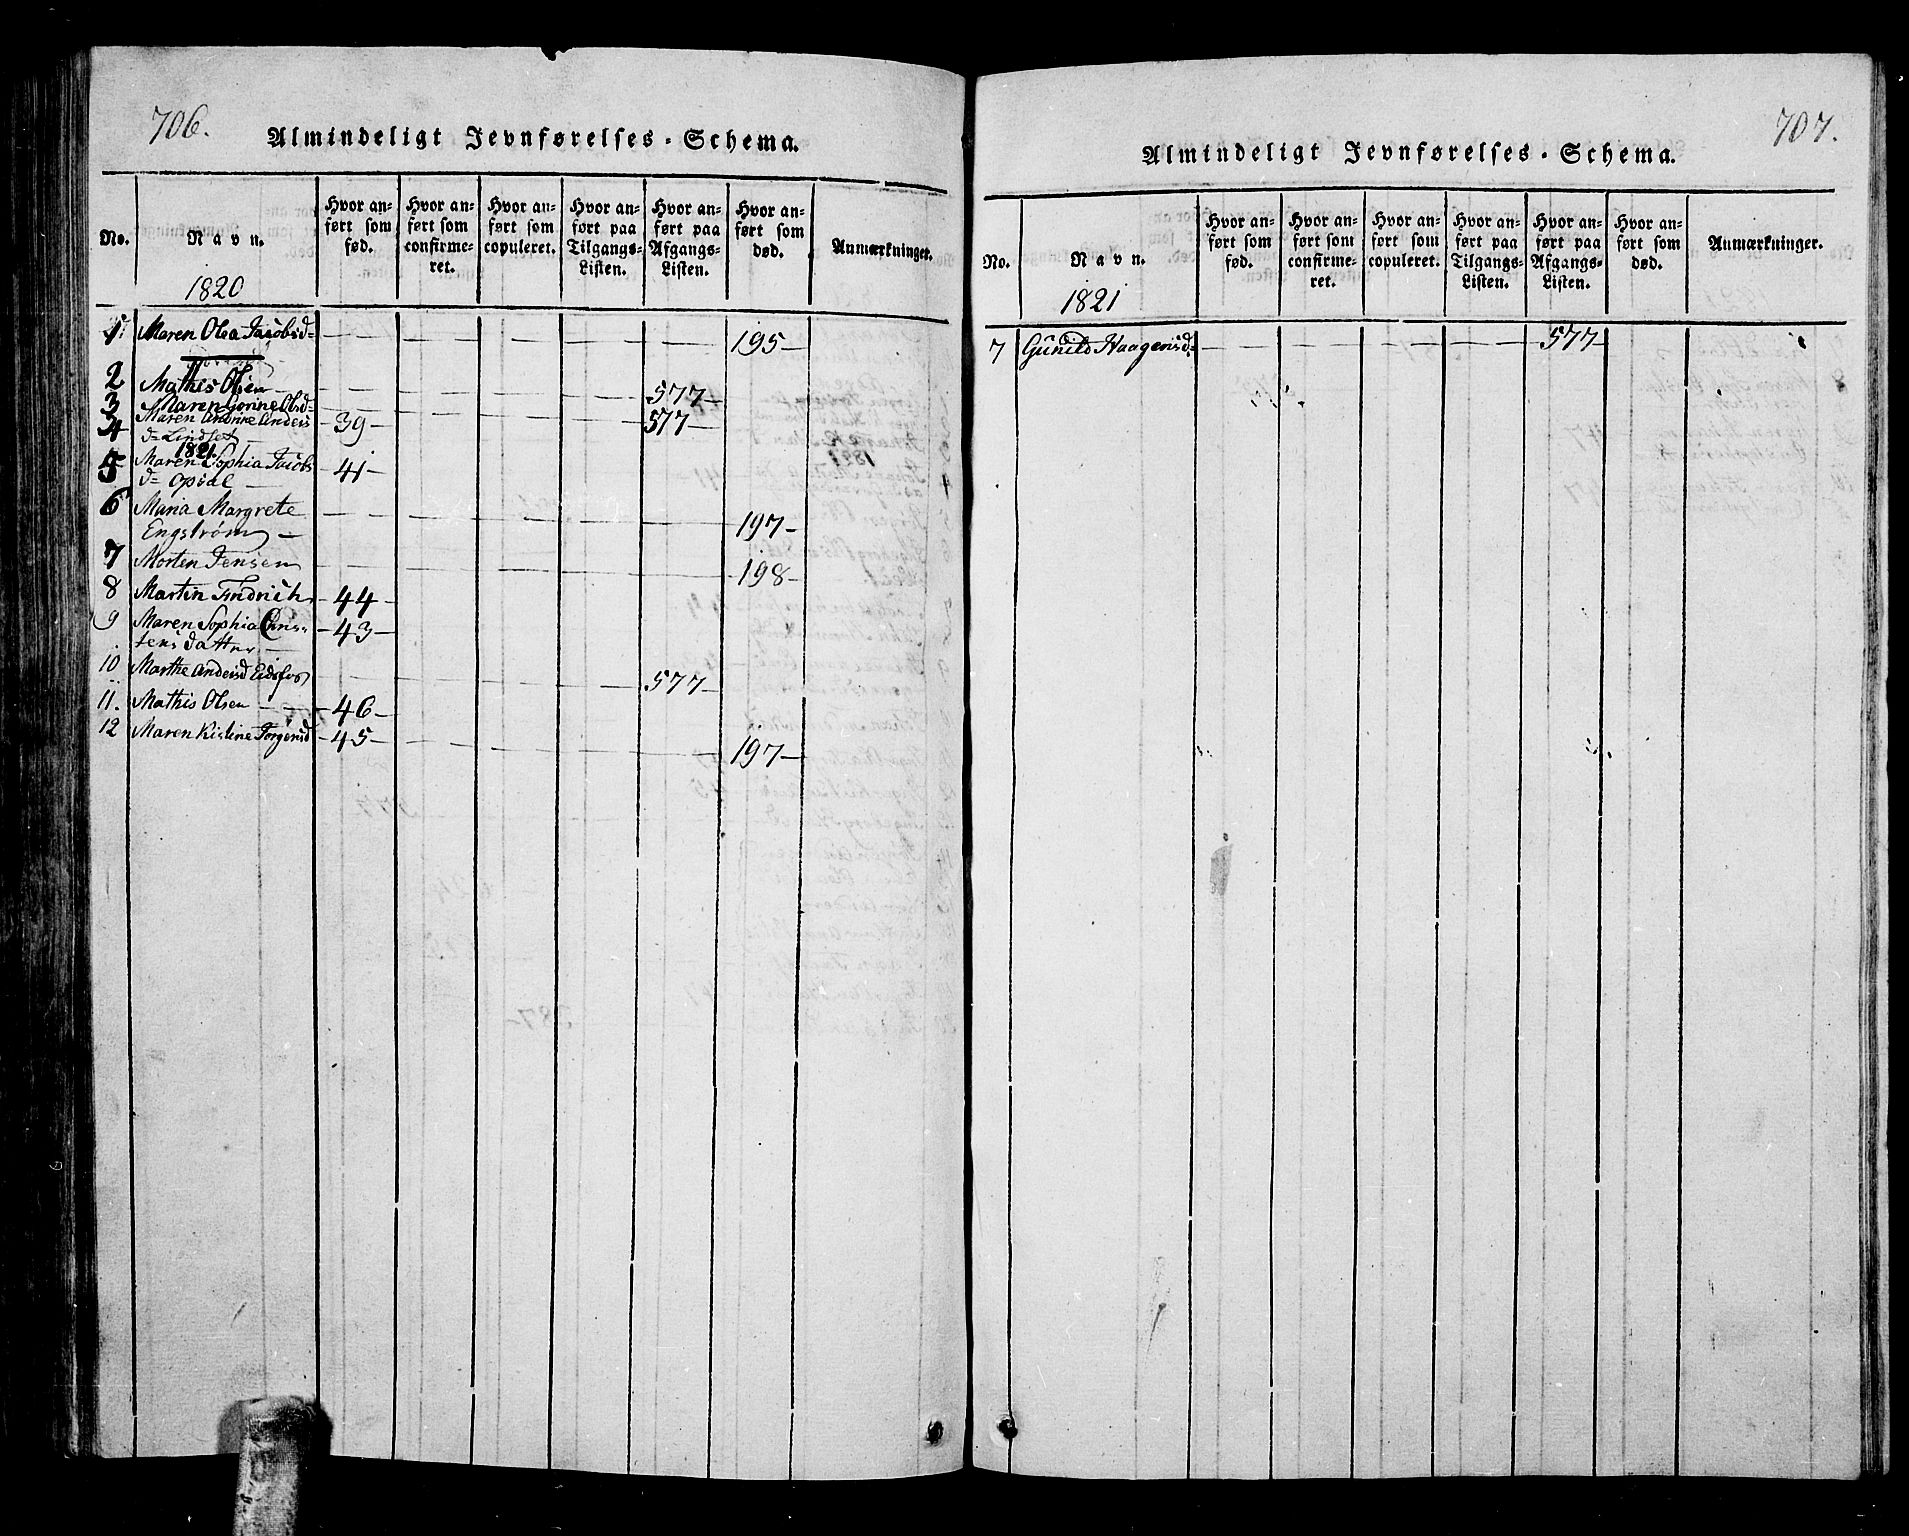 706.
Almindeligt Jevnførelses-Schema.
No. Navn. Hvor anført som fød. Hvor anført som confirmeret. Hvor anført som copuleret. Hvor anført paa Tilgangs-Listen. Hvor anført paa Afgangs-Listen. Hvor anført som død. Anmærkninger.
1820
1. Maren Olea Jacobsd= 195-
2 Mathes Olsen 577-
3 Maren Gorine Olsd= 577-
4 Maren Andrine Anders -39-
d= Lindset
1821.
5 Maren Sophia Jacobs -41-
d= Opdal
6 Maria Margrete 197-
Engstrøm
7 Morten Jensen 198-
8 Martin Findrich -44-
9 Maren Sophia Chris= -43-
tensdatter
10 Marthe Andersd Eidsfos 577-
11. Mathis Olsen -46-
12 Maren Kistine Torgersd -45- 197-
707.
Almindeligt Jevnførelses-Schema.
No. Navn. Hvor anført som fød. Hvor anført som confirmeret. Hvor anført som copuleret. Hvor anført paa Tilgangs-Listen. Hvor anført paa Afgangs-Listen. Hvor anført som død. Anmærkninger.
1821
7 Gunild Haagensd= 577-